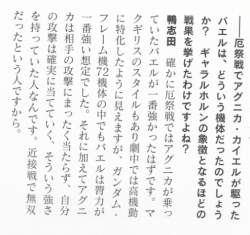 ――厄祭戦でアグニカ・カイエルが駆った
バエルは、どういう機体だったのでしょう
か？　ギャラルホルンの象徴となるほどの
戦果を挙げたわけですよね？
鴨志田　確かに厄祭戦ではアグニカが乗っ
ていたバエルが一番強かったはずです。マ
クギリスのスタイルもあり劇中では高機動
に特化したように見えますが、ガンダム・
フレーム72機体の中でもバエルは膂力が
一番強い想定でした。それに加えてアグニ
カは相手の攻撃にまったく当たらず、自分
の攻撃は確実に当てていく、そういう強さ
を持っていた人なんです。近接戦で無双
だったという人ですから。